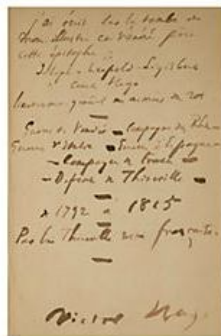 j'ai écrit sur la tombe de
mon illustre et vénéré père
cette épitaphe :
Joseph Léopold Sigisbert
Comte Hugo
lieutenant général des armées du roi
Guerre de Vendée — Campagne du Rhin
Guerre d'Italie — Guerre d'Espagne
— Campagne de
— Défense de Thionville —
de 1792 à 1815
Par lui Thionville resta française.
Victor Hugo